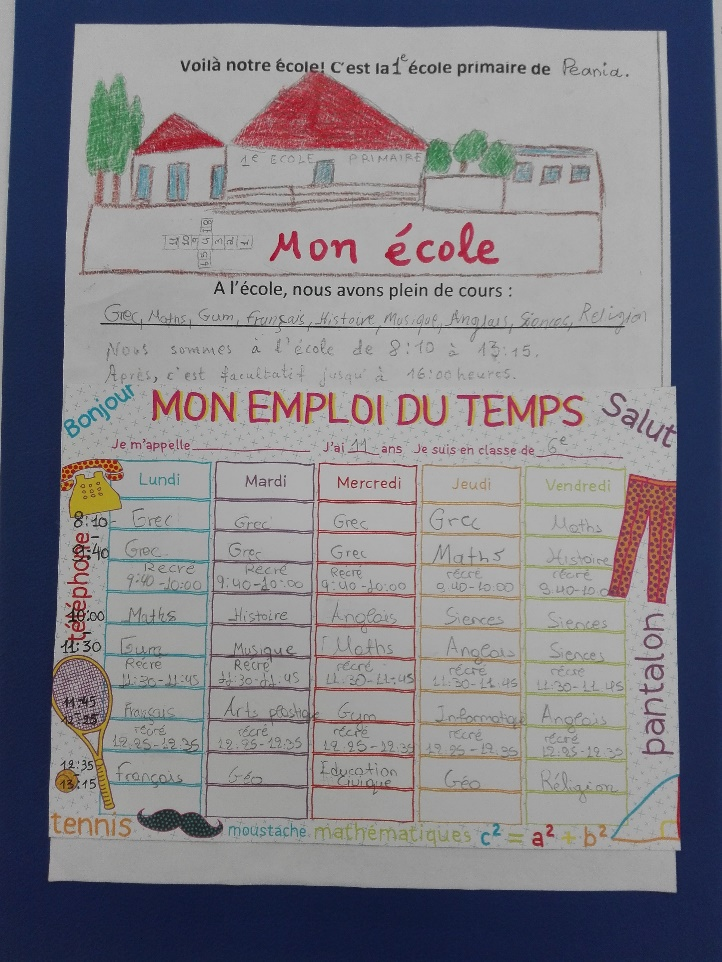 Voilà notre école! C'est la 1e école primaire de Peania.
1e ECOLE PRIMAIRE
Mon école
A l'école, nous avons plein de cours :
Grec, Maths, Gum, Français, Histoire, Musique, Anglais, Siences, Religion
Nous sommes à l'école de 8:10 à 13:15.
Après, c'est facultatif jusqu'à 16:00 heures.
Bonjour
MON EMPLOI DU TEMPS
Salut
Je m'appelle J'ai 11 ans Je suis en classe de 6e
Lundi Mardi Mercredi Jeudi Vendredi
8:10- Grec Grec Grec Grec Maths
9:40 Grec Grec Grec Maths Histoire
Recré Recré Recré récré récré
9:40-10:00 9:40-10:00 9:40-10:00 9.40-10:00 9.40-10.0
10:00 Maths Histoire Anglais Siences Siences
11:30 Gum Musique Maths Anglais Siences
Recré Recré récré récré récré
11:30-11:45 11:30-11:45 11.30-11:45 11:30-11.45 11.30-11.45
11:45 Français Arts plastique Gum Informatique Anglais
récré récré récré récré récré
12.25-12:35 12.25-12:35 12.25-12:35 12.25-12.35 12.25-12:35
12:35 Français Géo Education Civique Géo Réligion
13:15
téléphone
pantalon
tennis
moustache
mathématiques
c² = a² + b²